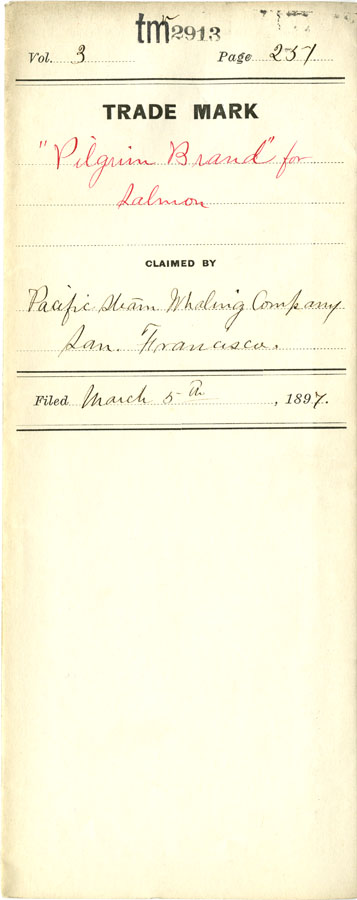 tm 2913
Vol. 3 Page 257
TRADE MARK
"Pilgrim Brand" for
Salmon
CLAIMED BY
Pacific Steam Whaling Company
San. Francisco.
Filed March 5th, 1897.